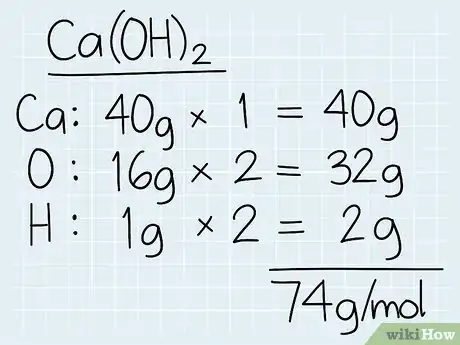 Ca(OH)₂
Ca: 40g × 1 = 40g
O: 16g × 2 = 32g
H: 1g × 2 = 2g
74g/mol
wikiHow